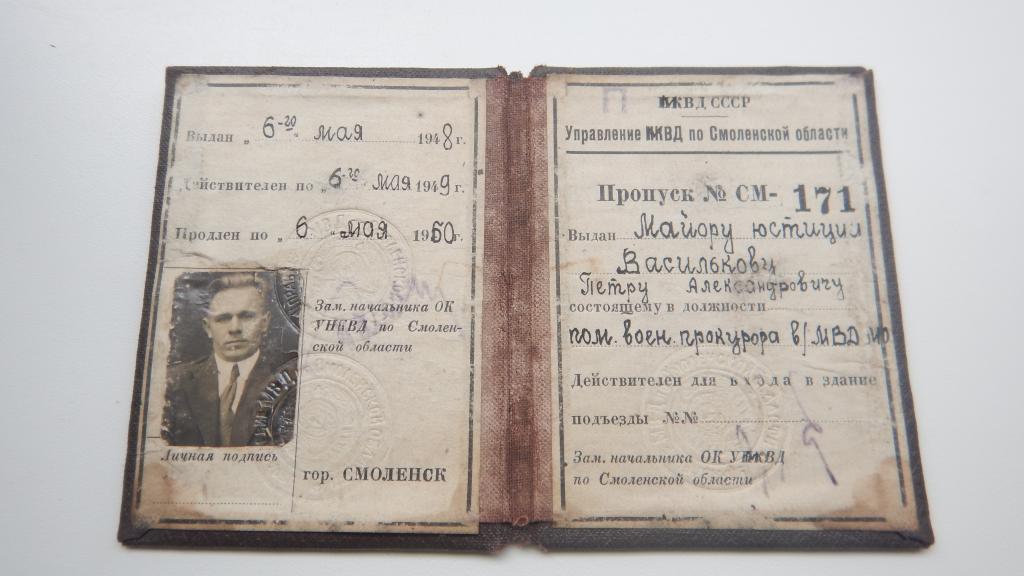 Выдан „ 6-го " мая 1948 г.
Действителен по „ 6-го " мая 1949 г.
Продлен по „ 6 " мая 1950 г.
Зам. начальника ОК
УНКВД по Смолен-
ской области
Личная подпись
гор. СМОЛЕНСК
П МВД СССР
Управление МВД по Смоленской области
Пропуск № СМ- 171
Выдан Майору юстиции
Василькову
Петру Александровичу
состоящему в должности
пом. воен. прокурора в/МВД мо
Действителен для входа в здание
подъезды №№
Зам. начальника ОК УМВД
по Смоленской области